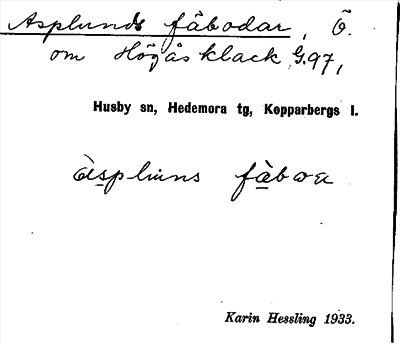 Asplunds fäbodar, Ö.
om Högåsklack, G.97,
Husby sn, Hedemora tg, Kopparbergs l.
àspluns fä̀bωα
Karin Hessling 1933.